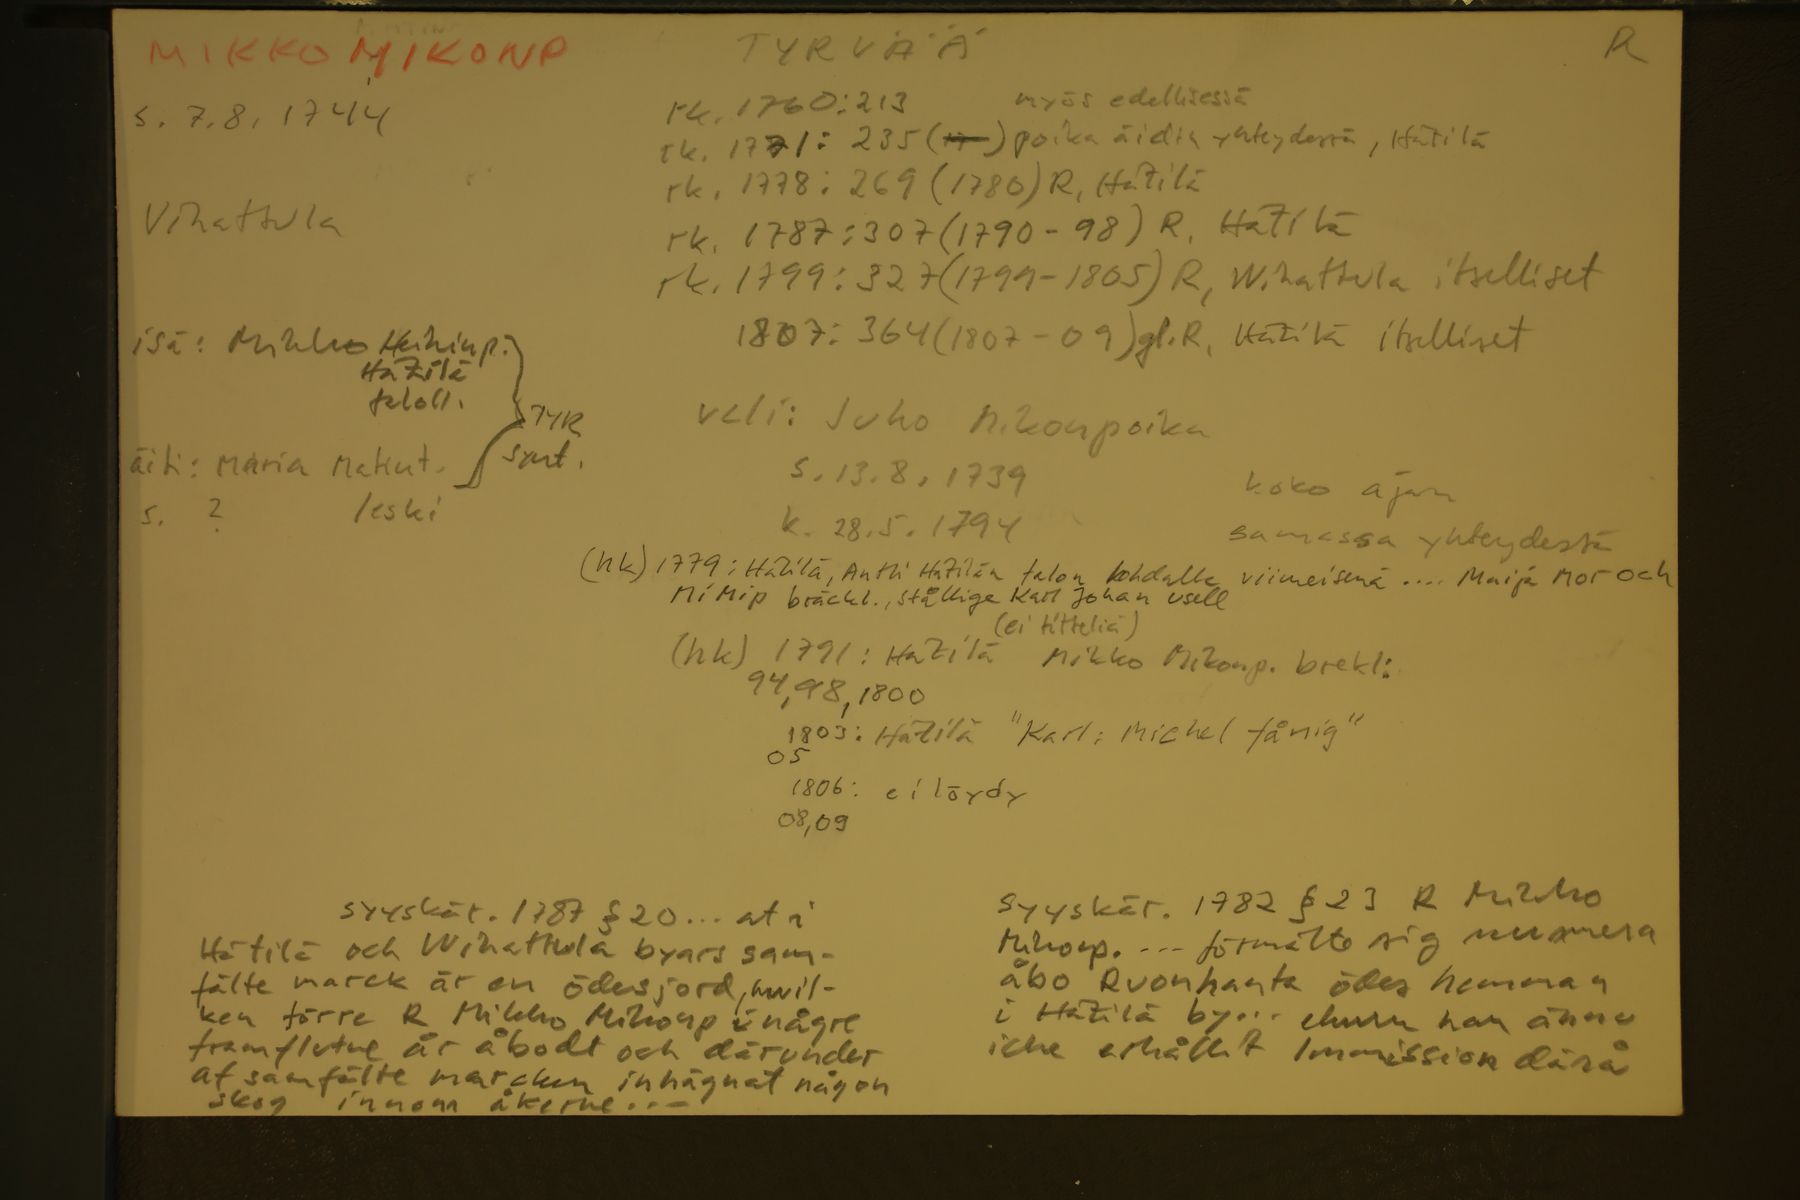 MIKKO MIKONP
TYRVÄÄ
R
s. 7.8. 1744
Vihattula
isä: Mikko Heikinp.
Hätilä
taloll.
äiti: Maria Matint.
s. ? leski
TYR
synt.
rk. 1760:213 myös edellisessä
rk. 1771: 235 ( ) poika äidin yhteydessä, Hätilä
rk. 1778: 269 (1780) R, Hätilä
rk. 1787:307 (1790-98) R, Hätilä
rk. 1799: 327 (1799-1805) R, Wihattula itselliset
1807: 364 (1807-09) gl.R, Hätilä itselliset
veli: Juho Mikonpoika
s. 13.8. 1739
k. 28.5. 1794
koko ajan
samassa yhteydessä
(hk) 1779: Hätilä, Antti Hätilän talon kohdalla viimeisenä .... Maija Mor och
MiMip bräckl., ställige Karl Johan usell
(ei titteliä)
(hk) 1791: Hätilä Mikko Mikonp. brekl:
94, 98, 1800
1803: Hätilä "Karl: Michel fånig"
05
1806: ei löydy
08,09
syyskär. 1787 § 20 ... at i
Hätilä och Wihattula byars sam-
fälte marck är en ödesjord, hwil-
ken förre R Mikko Mikonp i någre
framflutne år åbodt och därunder
af samfälte marcken inhägnat någon
skog innom åkerne...
syyskär. 1782 § 23 R Mikko
Mikonp. ... förmälte sig numera
åbo Ruonhanta ödes hemman
i Hätilä by... ehuru han ännu
icke erhållit Immission därå